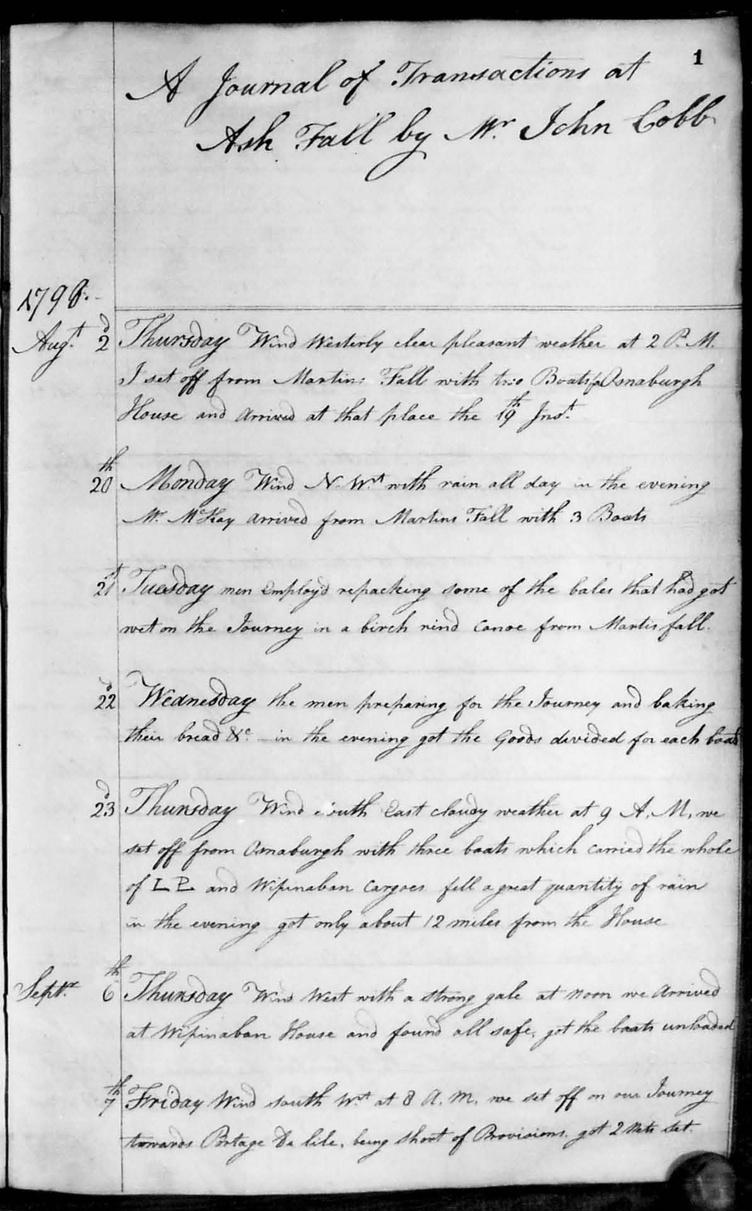 1
A Journal of Transactions at
Ash Fall by Mr. John Cobb
1798.
Augt. 2d Thursday Wind Westerly clear pleasant weather at 2 P.M.
I set off from Martins Fall with two Boats for Osnaburgh
House and arrived at that place the 19th Inst.
20th Monday Wind N. Wt with rain all day in the evening
Mr. McKay arrived from Martins Fall with 3 Boats
21st Tuesday men Employd repacking some of the bales that had got
wet on the Journey in a birch rind Canoe from Martis fall.
22d Wednesday the men preparing for the Journey and baking
their bread &c. in the evening got the Goods divided for each boat
23d Thursday Wind South East cloudy weather at 9 A.M. we
set off from Osnaburgh with three boats which carried the whole
of LP and Wipinaban Cargoes fell a great quantity of rain
in the evening got only about 12 miles from the House
Septr. 6th Thursday Wind West with a strong gale at noon we arrived
at Wipinaban House and found all safe, got the boats unloaded
7th Friday Wind South Wt at 8 A.M. we set off on our Journey
towards Portage De lile, being short of Provisions. got 2 Nets set.